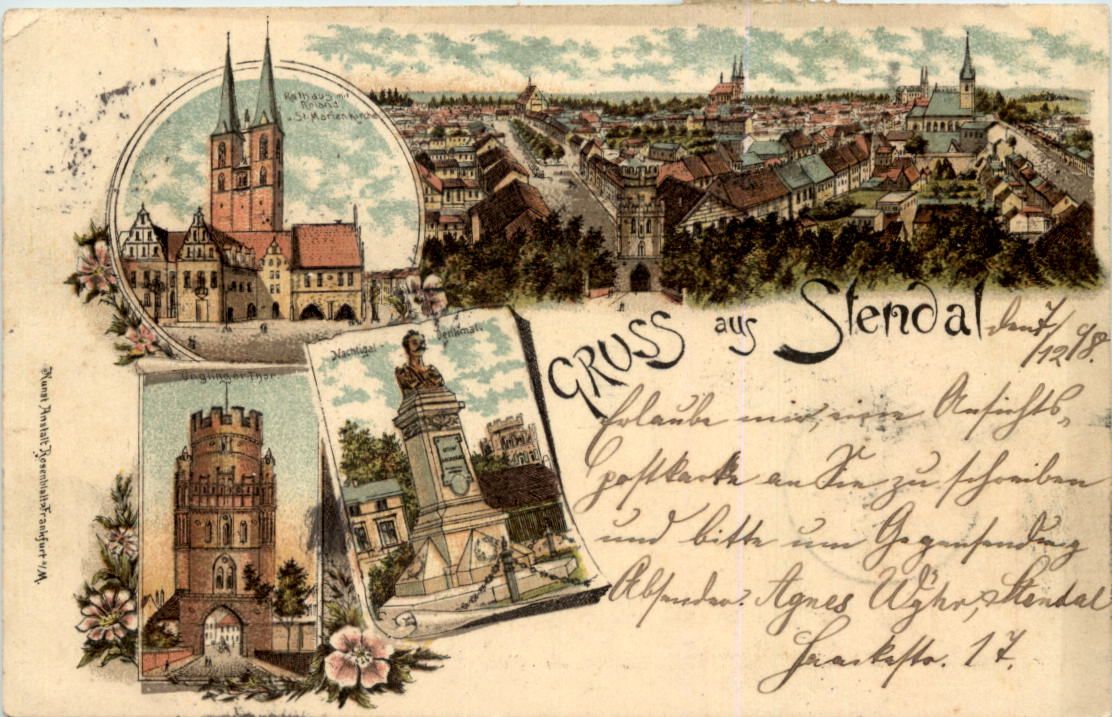 Rathaus mit
Roland
u. St. Marienkirche
Nachtigal-Denkmal.
Uenglinger Thor.
GRUSS aus Stendal
den 7/12 98.
Erlaube mir, eine Ansichts-
postkarte an Sie zu schreiben
und bitte um Gegensendung
Absender: Agnes
Stendal
17.
Kunst Anstalt Rosenblatt, Frankfurt a/M.